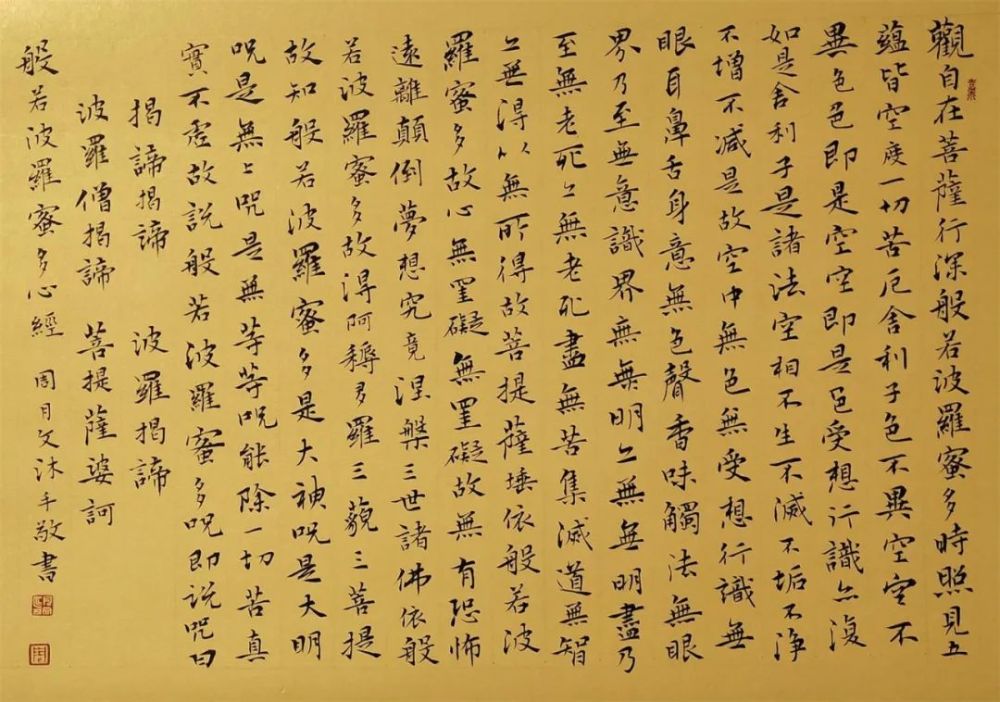 觀自在菩薩行深般若波羅蜜多時照見五
蘊皆空度一切苦厄舍利子色不異空空不
異色色即是空空即是色受想行識亦復
如是舍利子是諸法空相不生不滅不垢不淨
不增不減是故空中無色無受想行識無
眼耳鼻舌身意無色聲香味觸法無眼
界乃至無意識界無無明亦無無明盡乃
至無老死亦無老死盡無苦集滅道無智
亦無得以無所得故菩提薩埵依般若波
羅蜜多故心無罣礙無罣礙故無有恐怖
遠離顛倒夢想究竟涅槃三世諸佛依般
若波羅蜜多故得阿耨多羅三藐三菩提
故知般若波羅蜜多是大神咒是大明
咒是無上咒是無等等咒能除一切苦真
實不虛故說般若波羅蜜多咒即說咒曰
揭諦揭諦 波羅揭諦
波羅僧揭諦 菩提薩婆訶
般若波羅蜜多心經 周月文沐手敬書